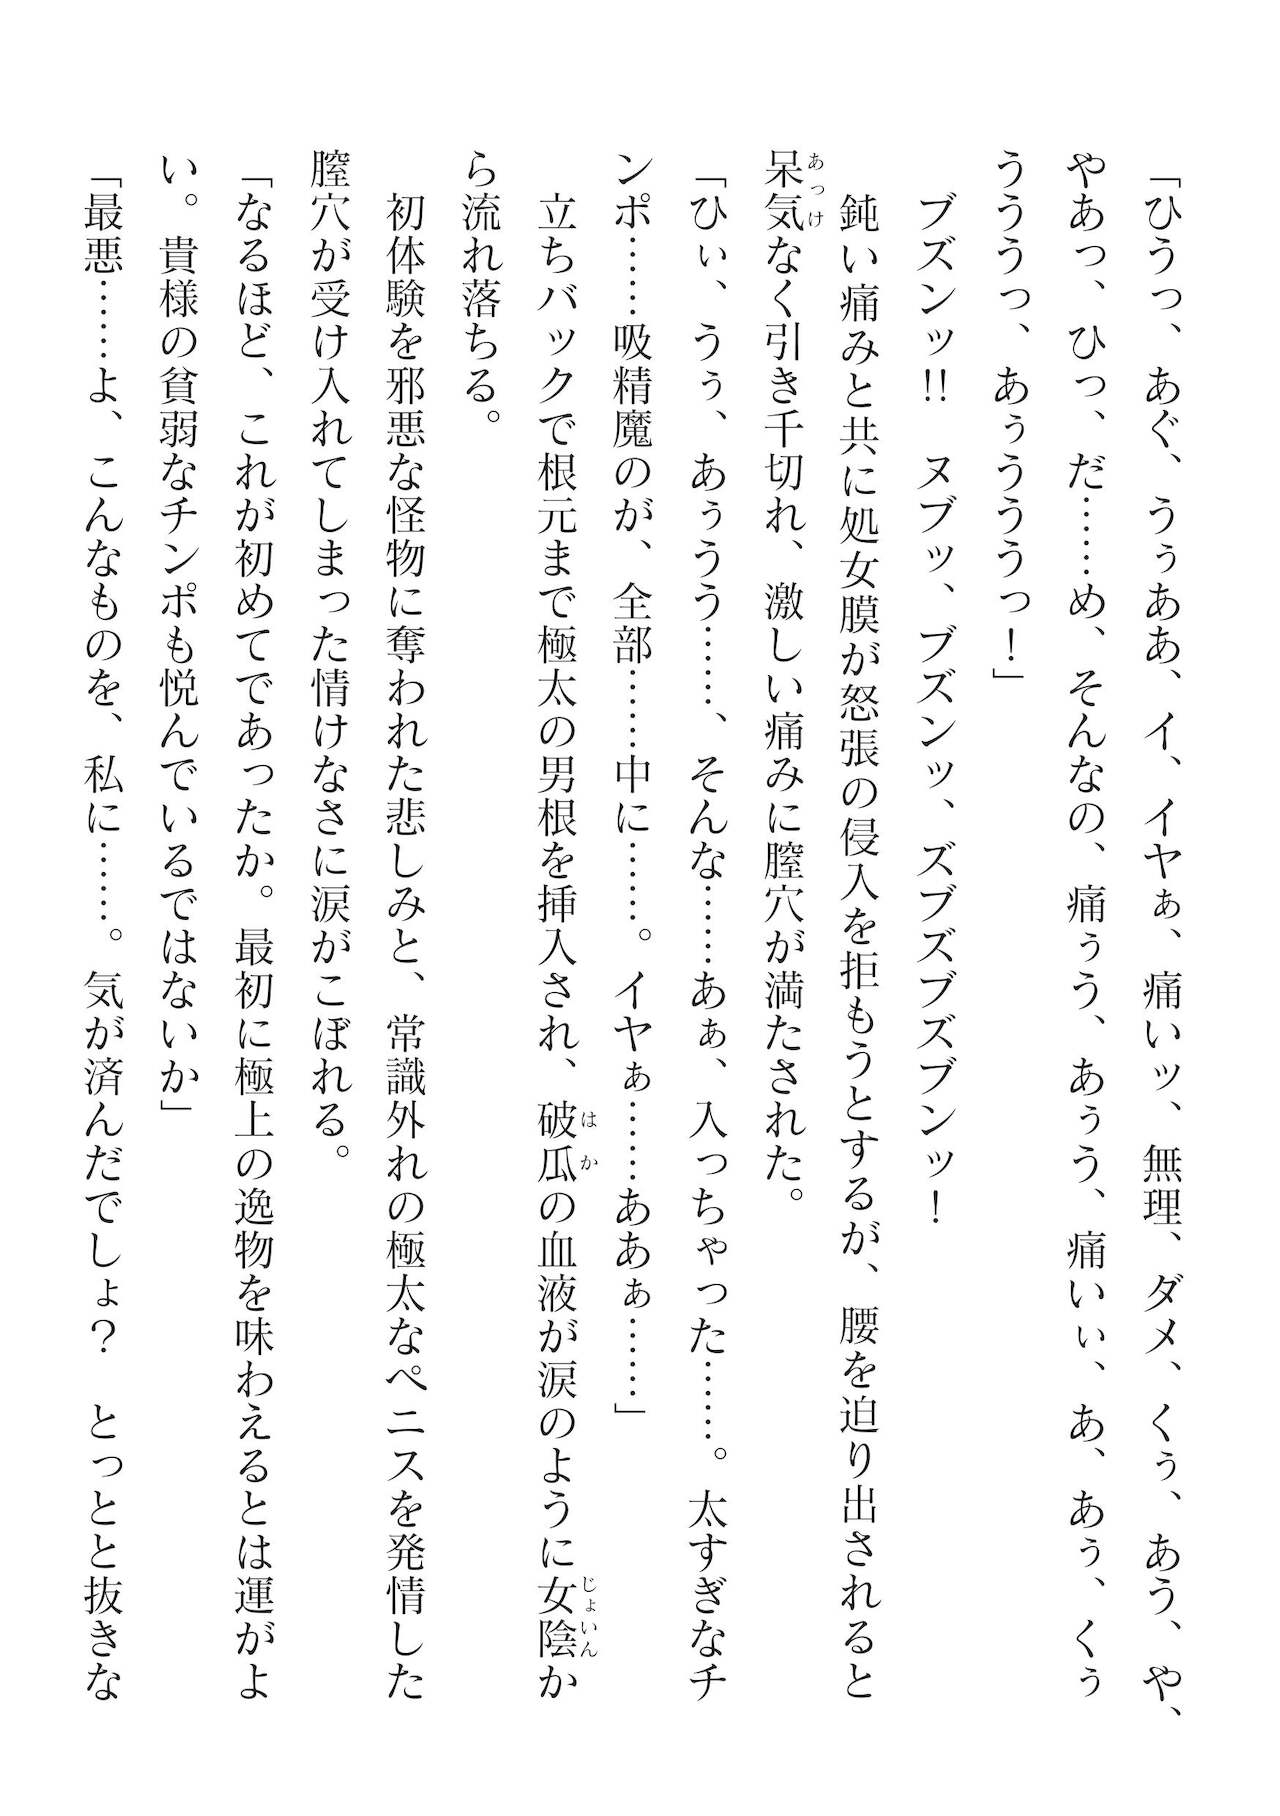 「ひうっ、あぐ、うぅああ、イ、イヤぁ、痛いッ、無理、ダメ、くぅ、あう、や、
やあっ、ひっ、だ……め、そんなの、痛ぅう、あぅう、痛いぃ、あ、あぅ、くぅ
うううっ、あぅうううっ！」
　ブズンッ!!　ヌブッ、ブズンッ、ズブズブズブンッ！
　鈍い痛みと共に処女膜が怒張の侵入を拒もうとするが、腰を迫り出されると
呆気なく引き千切れ、激しい痛みに膣穴が満たされた。
「ひぃ、うぅ、あぅうう……、そんな……あぁ、入っちゃった……。太すぎなチ
ンポ……吸精魔のが、全部……中に……。イヤぁ……ああぁ……」
　立ちバックで根元まで極太の男根を挿入され、破瓜の血液が涙のように女陰か
ら流れ落ちる。
　初体験を邪悪な怪物に奪われた悲しみと、常識外れの極太なペニスを発情した
膣穴が受け入れてしまった情けなさに涙がこぼれる。
「なるほど、これが初めてであったか。最初に極上の逸物を味わえるとは運がよ
い。貴様の貧弱なチンポも悦んでいるではないか」
「最悪……よ、こんなものを、私に……。気が済んだでしょ？　とっとと抜きな